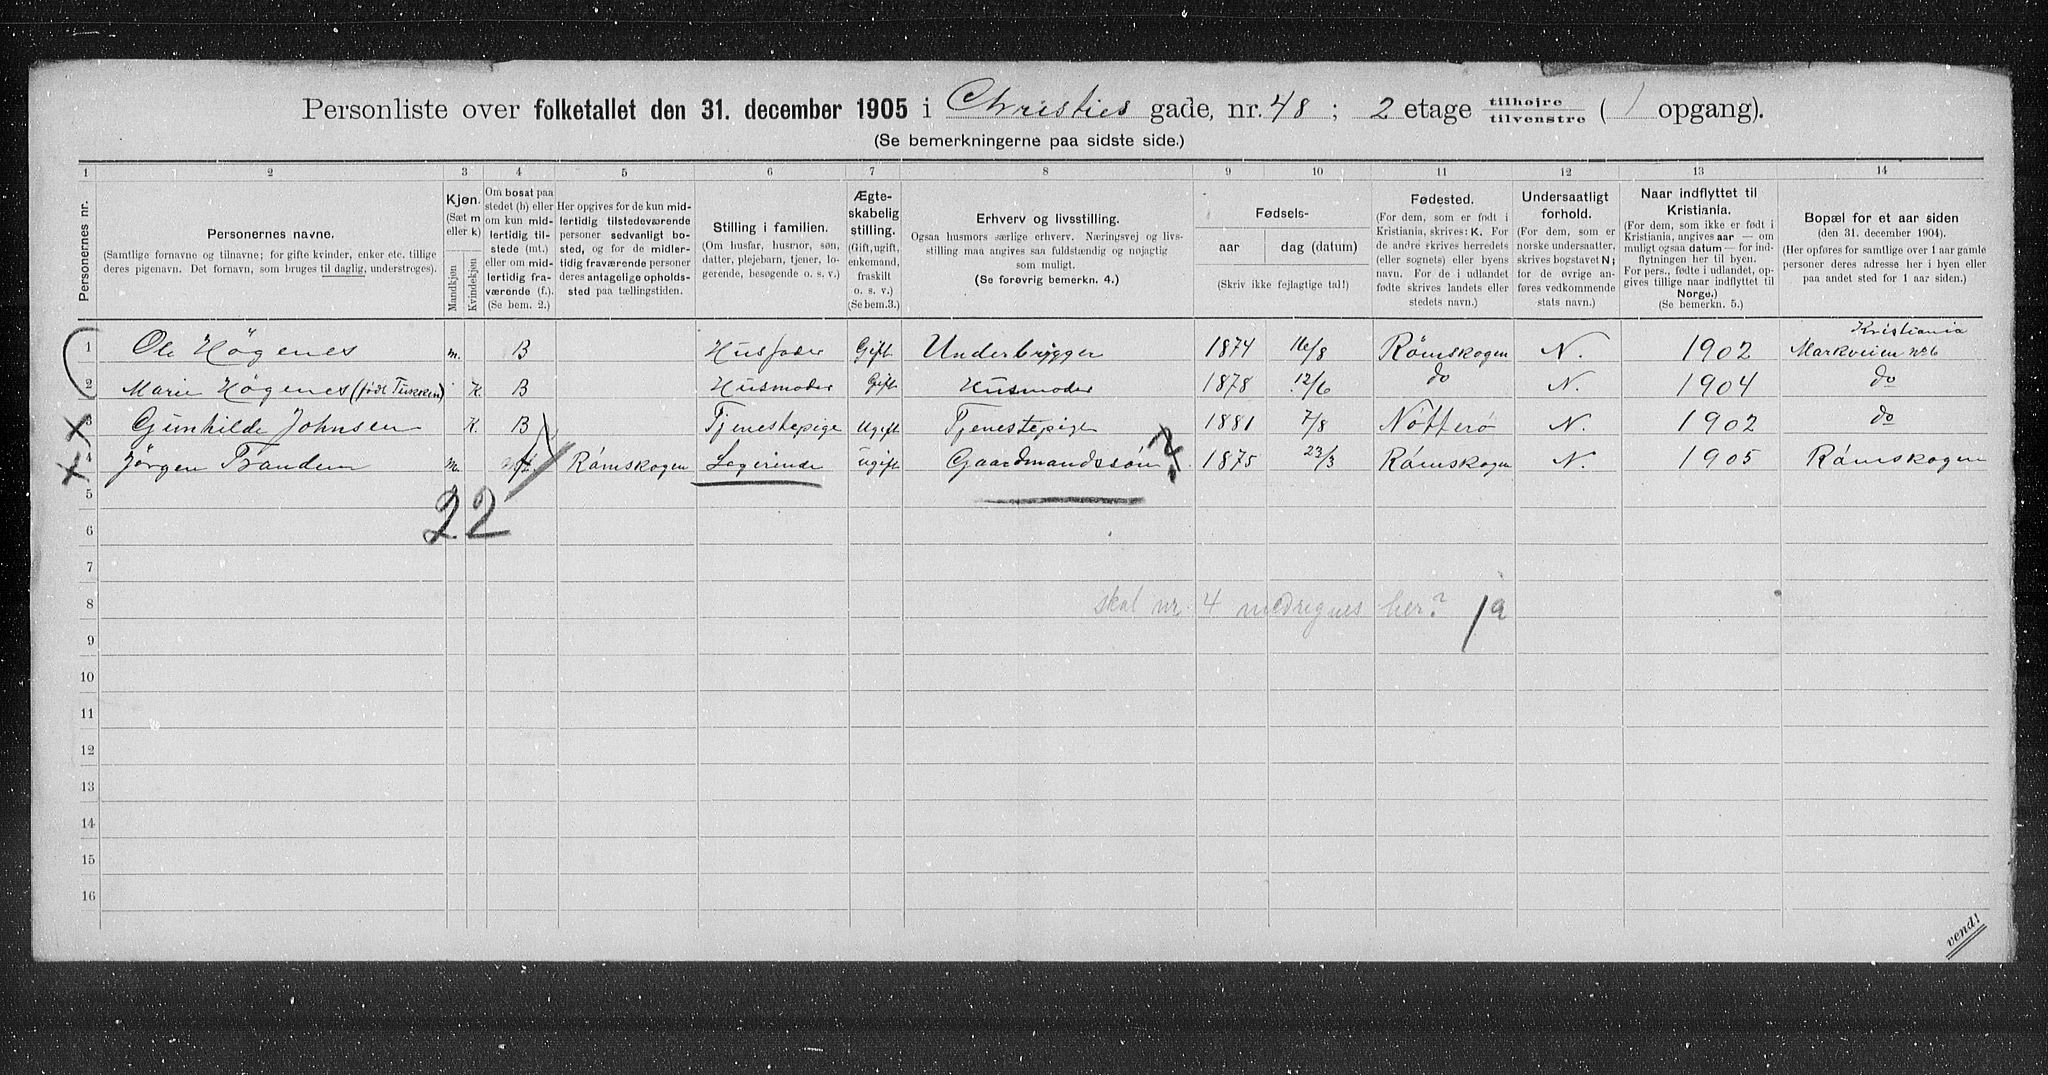 Personliste over folketallet den 31. december 1905 i Christies gade, nr. 48 ; 2 etage tilhøjre tilvenstre ( 1 opgang).
(Se bemerkningerne paa sidste side.)
1 2 3 4 5 6 7 8 9 10 11 12 13 14
Personernes nr.
Personernes navne.
(Samtlige fornavne og tilnavne; for gifte kvinder, enker etc. tillige
deres pigenavn. Det fornavn, som bruges til daglig, understreges).
Kjøn.
(Sæt m
eller k)
Mandkjøn
Kvindekjøn
Om bosat paa
stedet (b) eller
om kun mid-
lertidig til-
stede (mt.)
eller om mid-
lertidig fra-
værende (f.).
(Se bem. 2.)
Her opgives for de kun mid-
lertidig tilstedeværende
personer sedvanlig bo-
sted, og for de midler-
tidig fraværende personer
deres antagelige opholds-
sted paa tællingstiden.
Stilling i familien.
(Om husfar, husmor, søn,
datter, plejebarn, tjener, lo-
gerende, besøgende o. s. v.)
Ægte-
skabelig
stilling.
(Gift, ugift,
enkemand,
fraskilt
o. s. v.)
(Se bem.3.)
Erhverv og livsstilling.
Ogsaa husmors særlige erhverv. Næringsvej og livs-
stilling maa angives saa fuldstændig og nøjagtig
som muligt.
(Se forøvrig bemerkn. 4.)
Fødsels-
aar dag (datum)
(Skriv ikke fejlagtige tal!)
Fødested.
(For dem, som er født i
Kristiania, skrives: K. For
de andre skrives herredets
(eller sognets) eller byens
navn. For de i udlandet
fødte skrives landets eller
stedets navn.)
Undersaatligt
forhold.
(For dem, som er
norske undersaatter,
skrives bogstavet N;
for de øvrige an-
føres vedkommende
stats navn.)
Naar indflyttet til
Kristiania.
(For dem, som ikke er født i
Kristiania, angives aar — om
muligt ogsaa datum — for ind-
flytningen her til byen.
For pers., fødte i udlandet, op-
gives tillige naar indflyttet til
Norge.)
(Se bemerkn. 5.)
Bopæl for et aar siden
(den 31. december 1904).
(Her opføres for samtlige over 1 aar gamle
personer deres adresse her i byen eller
paa andet sted for 1 aar siden.)
1 Ole Högenes m. B Husfader Gift Underbrygger 1874 16/8 Römskogen N. 1902 Kristiania Markveien No 6
2 Marie Högenes (født Tukken) K. B Husmoder Gift Husmoder 1878 12/6 do N. 1904 do
3 Gunhilde Johnsen K. B Tjenestepige Ugift Tjenestepige 1881 7/8 Nötterö N. 1902 do
4 Jörgen Trandem m. Römskogen Logerende ugift Gaardmandssön ? 1875 23/3 Römskogen N. 1905 Römskogen
5
22
6
7
8 skal nr. 4 medregnes her? Ja
9
10
11
12
13
14
15
16
vend!